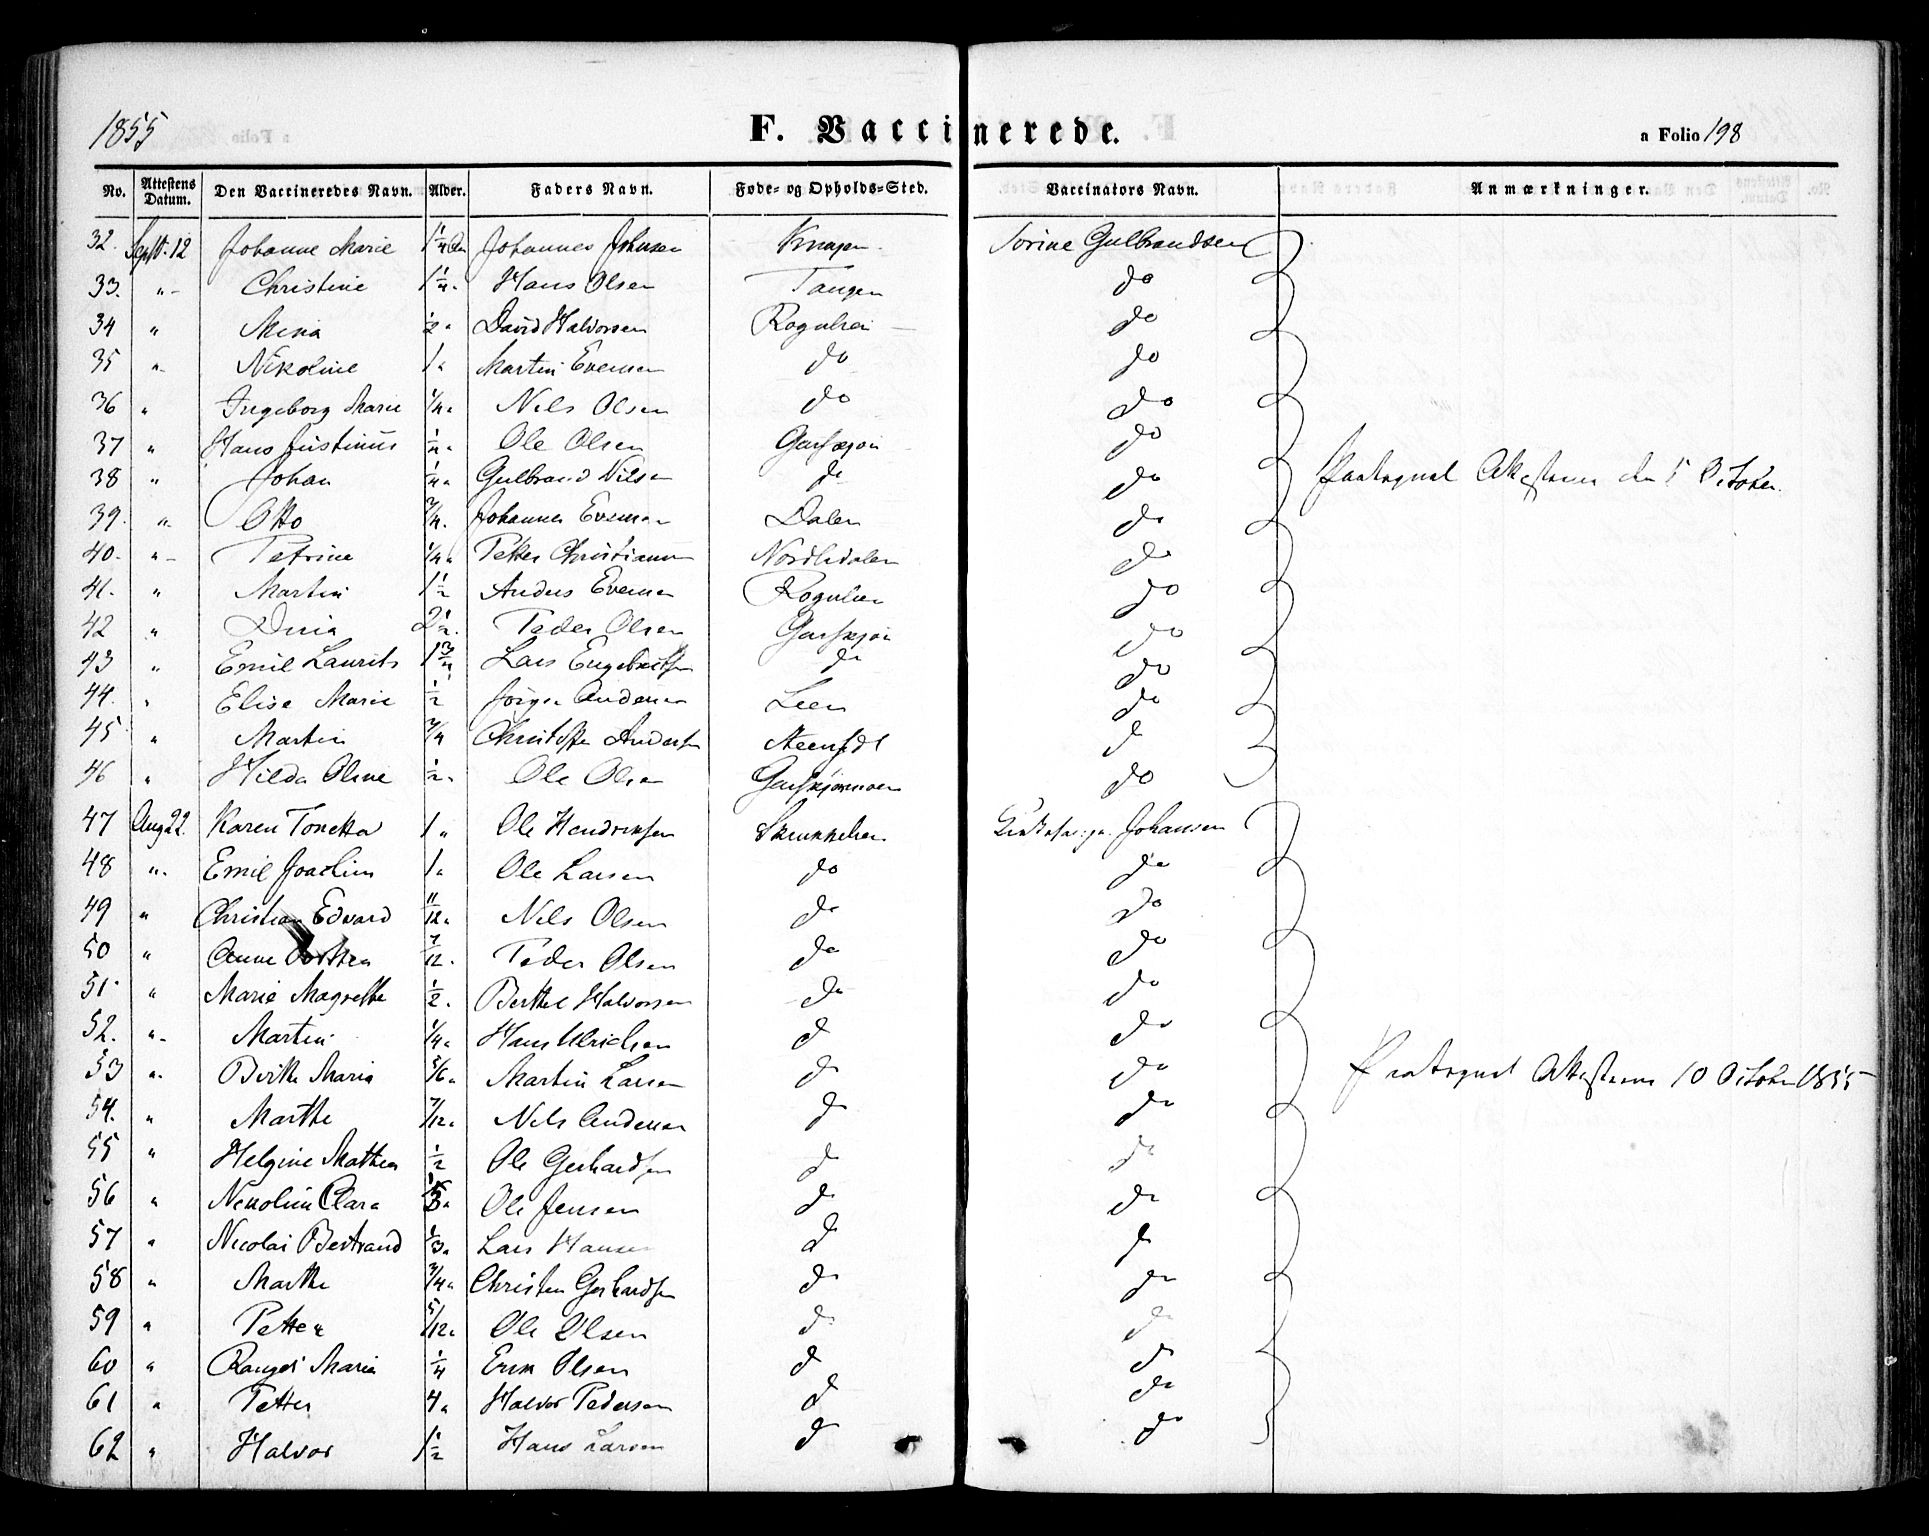 1855 F. Vaccinerede. a Folio 198
No. Attestens Datum. Den Vaccineredes Navn. Alder. Faders Navn. Føde- og Opholds-Sted. Vaccinators Navn. Anmærkninger.
32. Sept. 12 Johanne Marie 1 1/4 Johannes Johnsen Sorine Gulbrandsen
33. " Christine 1 1/4 Hans Olsen Tangen do
34 " Mina 1/2 David Halvorsen do
35 " Nikoline 1 Martin Evensen do do
36 " Ingeborg Marie 1/4 Nils Olsen do do
37 " Hans Justinus 1/4 Ole Olsen Garsæjøn do
38 " Johan 1/4 Gulbrand Nilsen do do Attesterne den 5 October.
39. " Otto 3/4 Johannes Evensen Dalen do
40. " Petrine 1/4 Petter Christiansen Nordlidalen do
41. " Martin 1 1/2 Anders Evensen do
42 " 2 1/2 Peder Olsen Garsæjøn do
43 " Emil Laurits 1 3/4 Lars Engebretsen do do
44. " Elise Marie 1/2 Jörgen Andersen Leer do
45 " Martin 3/4 Christoffer Andersen do
46 " Hilda Oline 1/2 Ole Olsen do
47 Aug 22. Karen Tonetta 1 " Ole Hendriksen Skrukkelien Johansen
48 " Emil Joachim 1 Ole Larsen do do
49 " Christian Edvard 11/12 Nils Olsen do do
50 " Anne Dorthea 7/12 Peder Olsen do do
51 " Marie Magrethe 1/2 Berthel Halvorsen do do
52. " Martin 1/4 Hans Ulrichsen do do
53 " Berthe Maria 5/6 Martin Larsen do do Attesterne 10 October 1855
54. " Marthe 7/12 Nils Andersen do do
55 " Helgine Mathea 1/2 Ole Gerhardsen do do
56 " Nikoline Clara Ole Jensen do do
57 " Nicolai Bertrand 1/3 Lars Hansen do do
58 " Marthe 3/4 Christen Gerhardsen do do
59 " Petter 5/12 Ole Olsen do do
60 " Rangdi Maria 1/4 Erik Olsen do do
61 " Petter 4 Halvor Pedersen do do
62 " Halvor 1 1/2 Hans Larsen do do